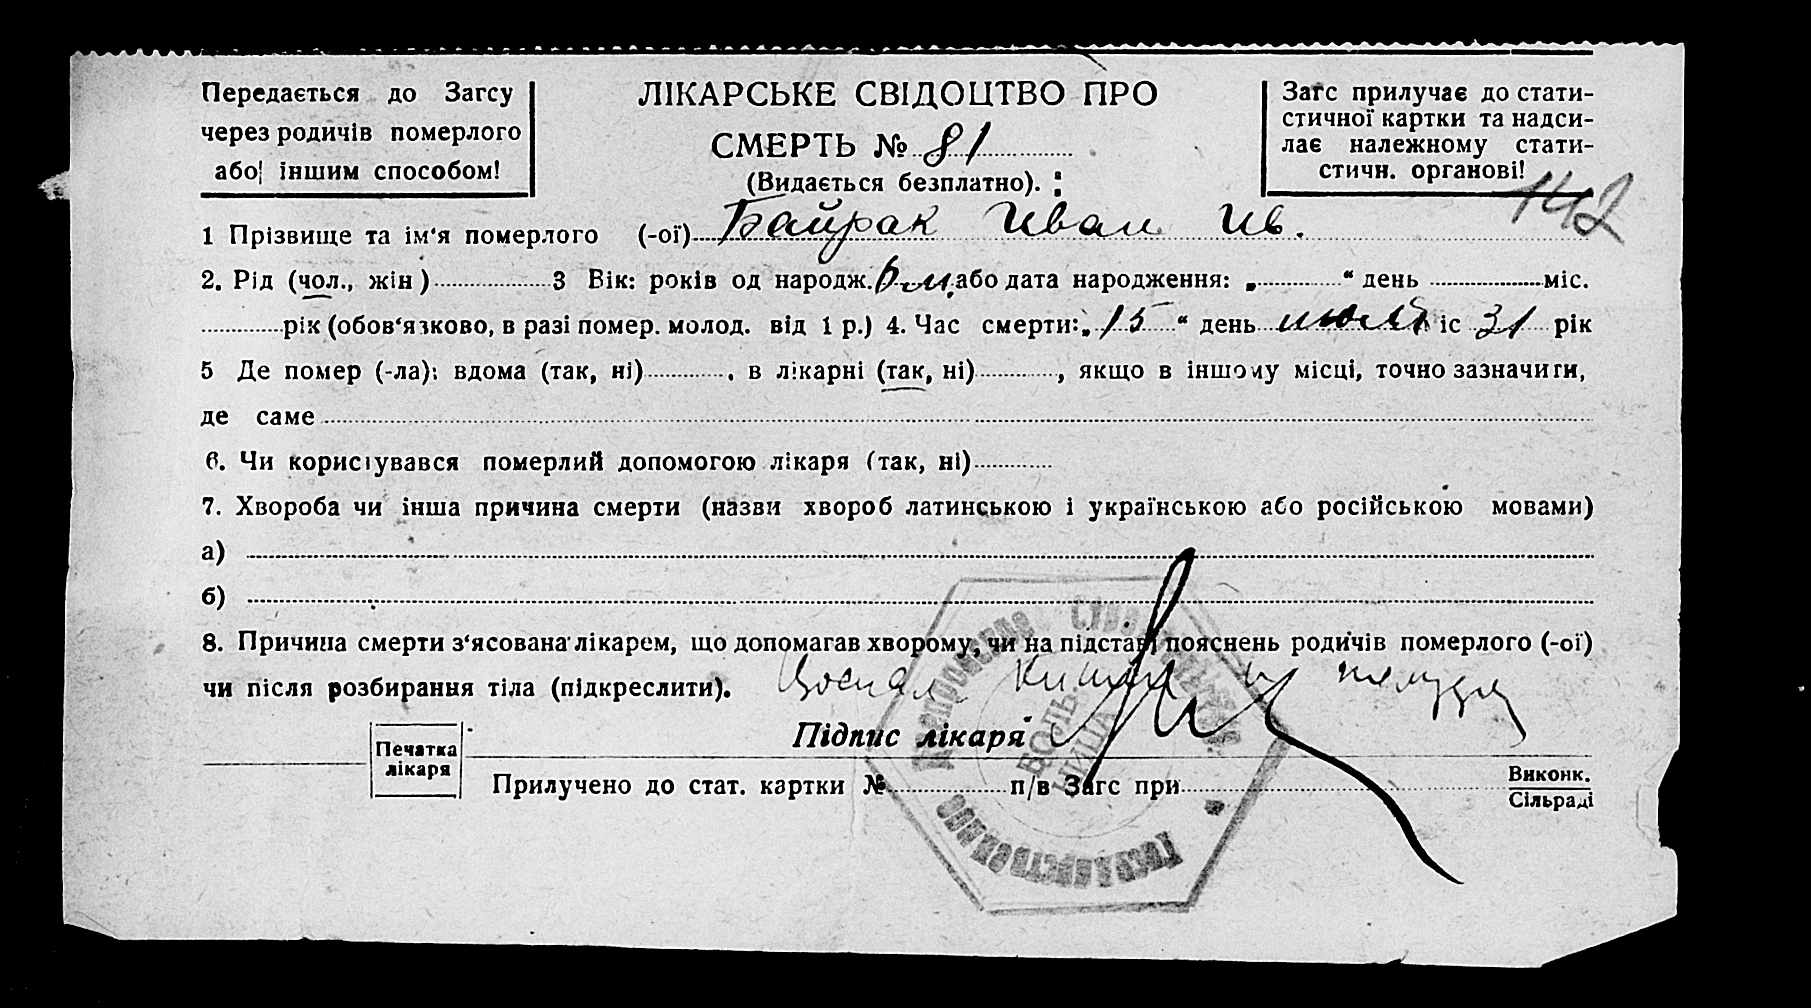 Передається до Загсу
через родичів померлого
або іншим способом!
ЛІКАРСЬКЕ СВІДОЦТВО ПРО
СМЕРТЬ № 81
(Видається безплатно).
Загс прилучає до стати-
стичної картки та надси-
лає належному стати-
стичн. органові!
142
1 Прізвище та ім‘я померлого (-ої) Байрак Иван Ив.
2. Рід (чол., жін) 3 Вік: років од народж. 6 м. або дата народження: „ “ день міс.
рік (обов‘язково, в разі помер. молод. від 1 р.) 4. Час смерти: „15“ день июля іс 31 рік
5 Де помер (-ла): вдома (так, ні) , в лікарні (так, ні) , якщо в іншому місці, точно зазначити,
де саме
6. Чи користувався померлий допомогою лікаря (так, ні)
7. Хвороба чи інша причина смерти (назви хвороб латинською і українською або російською мовами)
а)
б)
8. Причина смерти з‘ясована лікарем, що допомагав хворому, чи на підставі пояснень родичів померлого (-ої)
чи після розбирання тіла (підкреслити). Воспал. киш и желудка
Підпис лікаря
Печатка
лікаря
Прилучено до стат. картки № п/в Загс при
Виконк.
Сільраді
Днепровское
Государственное
БОЛЬ-
НИЦА